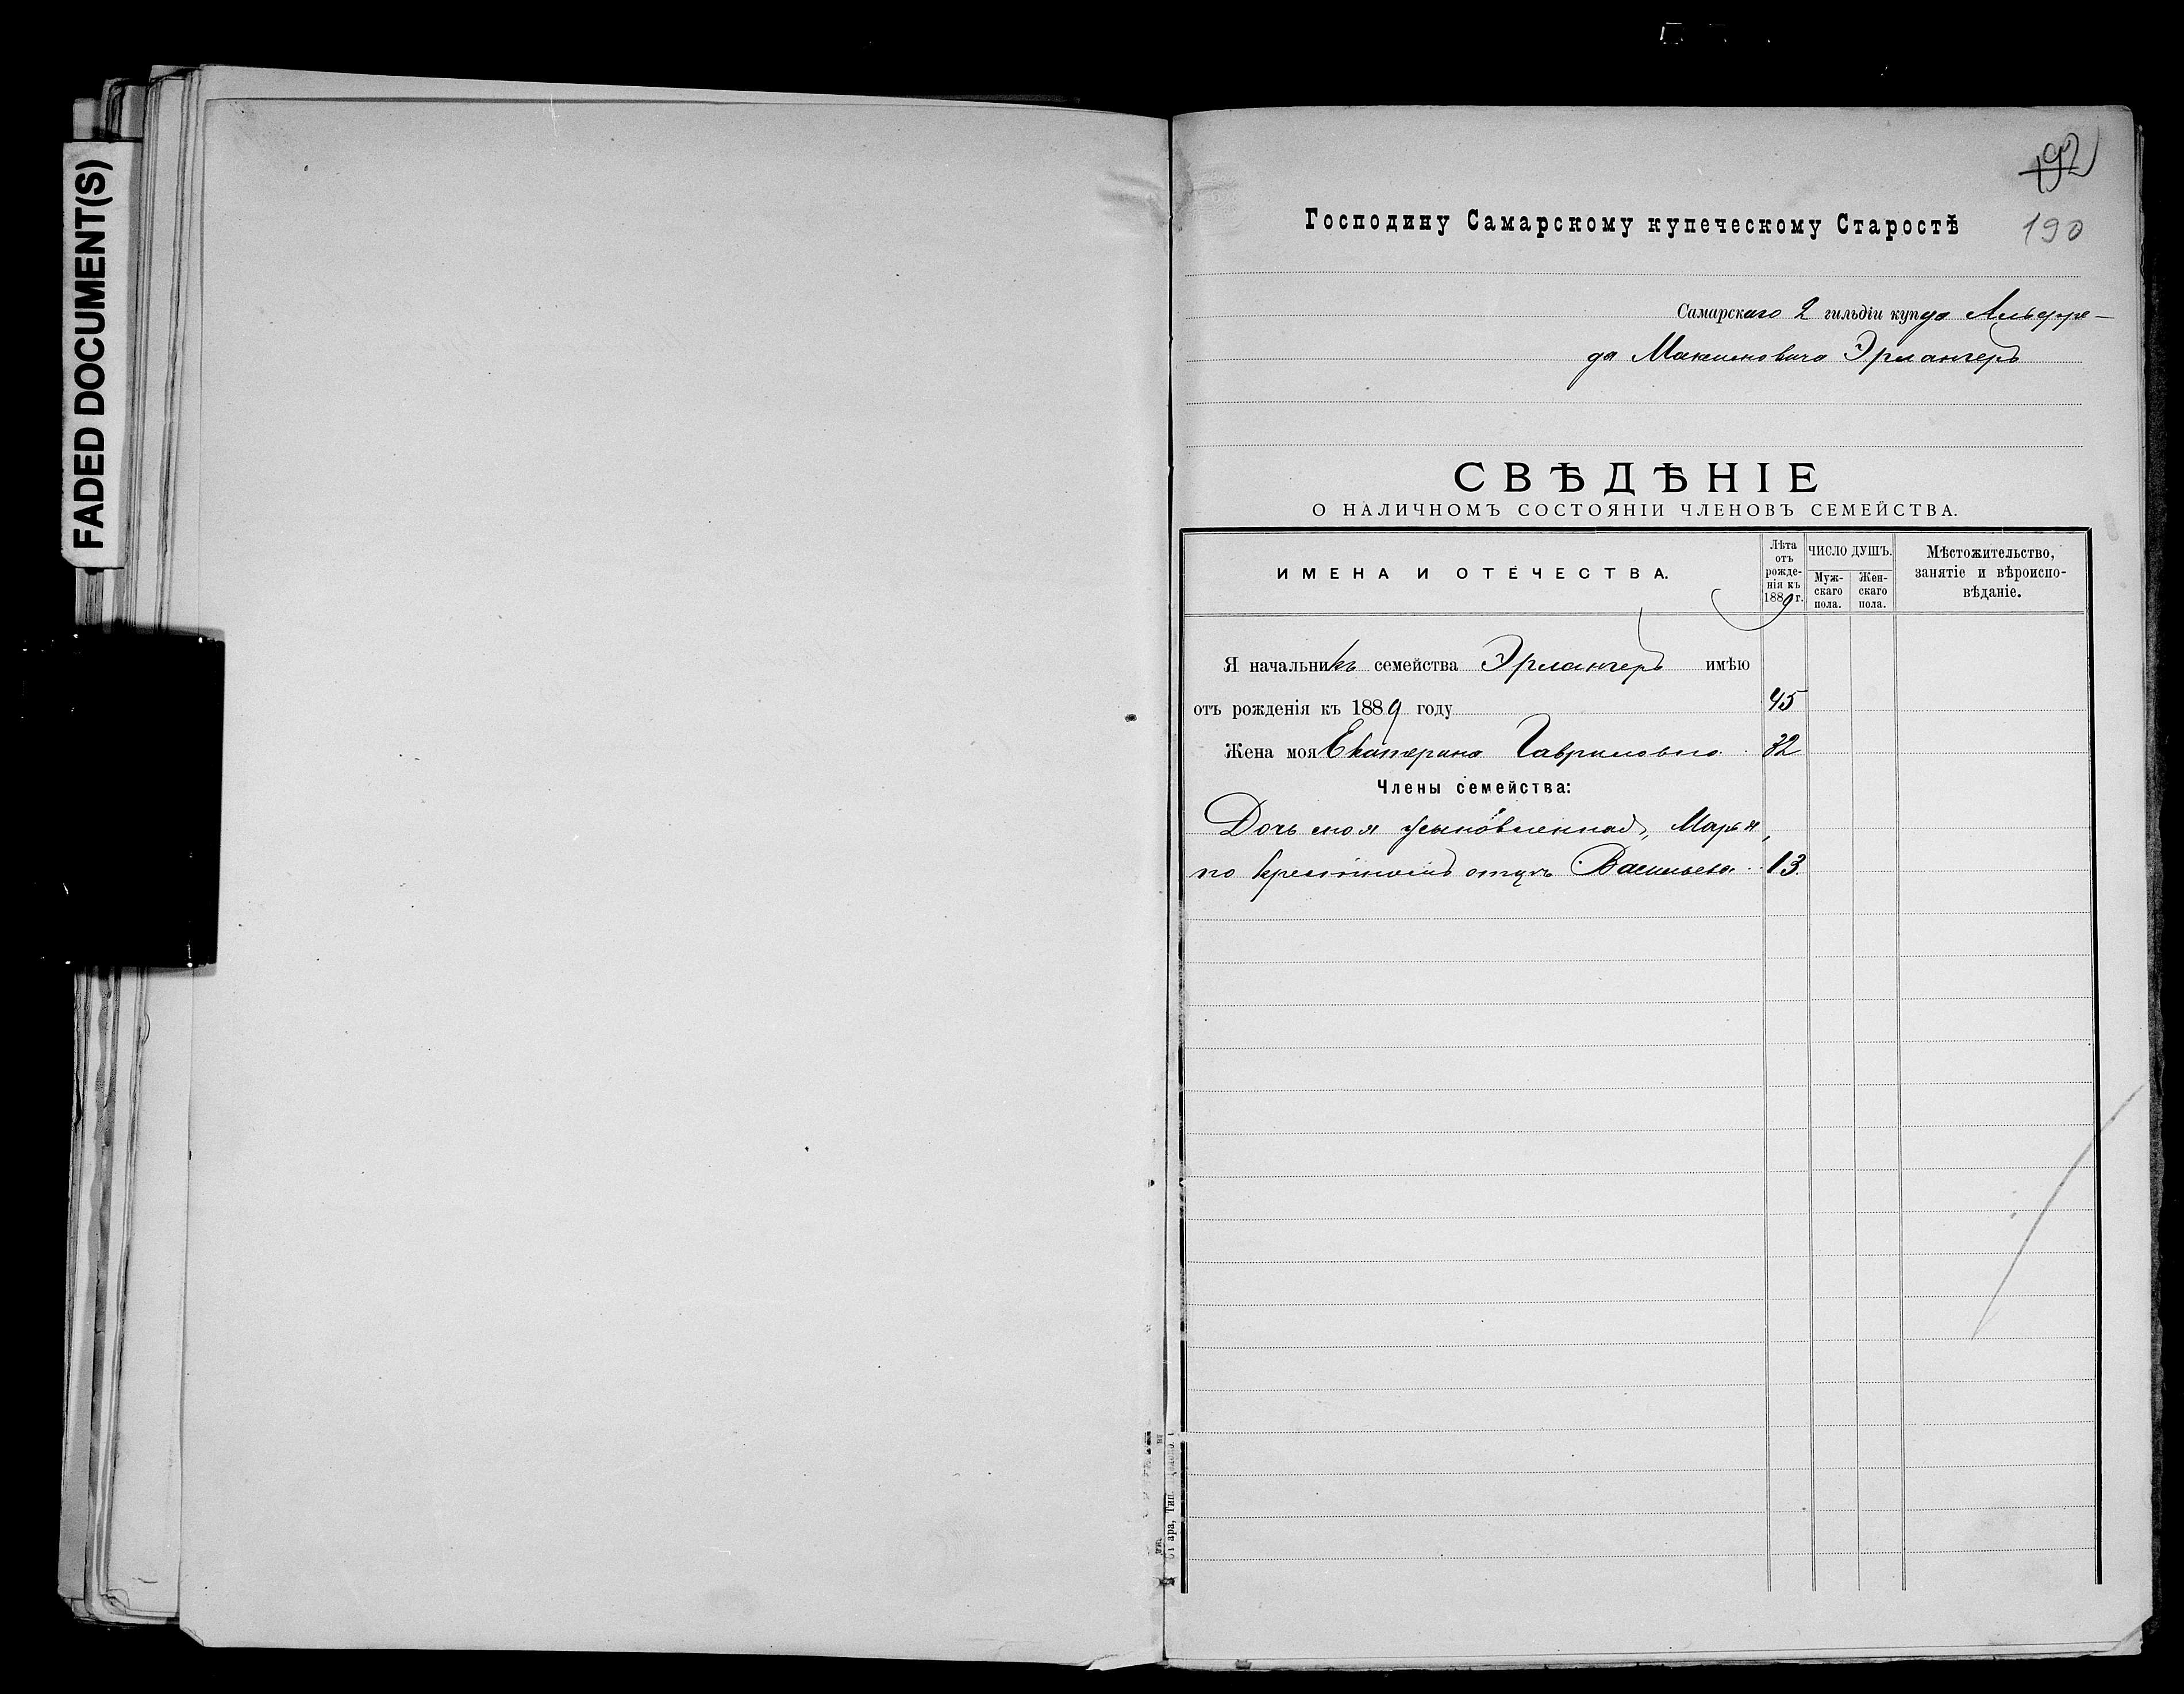 FADED DOCUMENT(S)
192
Господину Самарскому купеческому Старостѣ
190
Самарскаго 2 гильдіи купца Альфре-
да Максимовича Эрлангеръ
СВѢДѢНІЕ
О НАЛИЧНОМЪ СОСТОЯНІИ ЧЛЕНОВЪ СЕМЕЙСТВА.
ИМЕНА И ОТЕЧЕСТВА.
Лѣта
отъ
рожде-
нія къ
1889 г.
ЧИСЛО ДУШЪ.
Муж-
скаго
пола.
Жен-
скаго
пола.
Мѣстожительство,
занятіе и вѣроиспо-
вѣданіе.
Я начальникъ семейства Эрлангеръ имѣю
отъ рожденія къ 1889 году 45
Жена моя Екатерина Гавриловна 32
Члены семейства:
Дочь моя усыновленная, Марья,
по крестному отцу Васильева 13
ара, Тип.